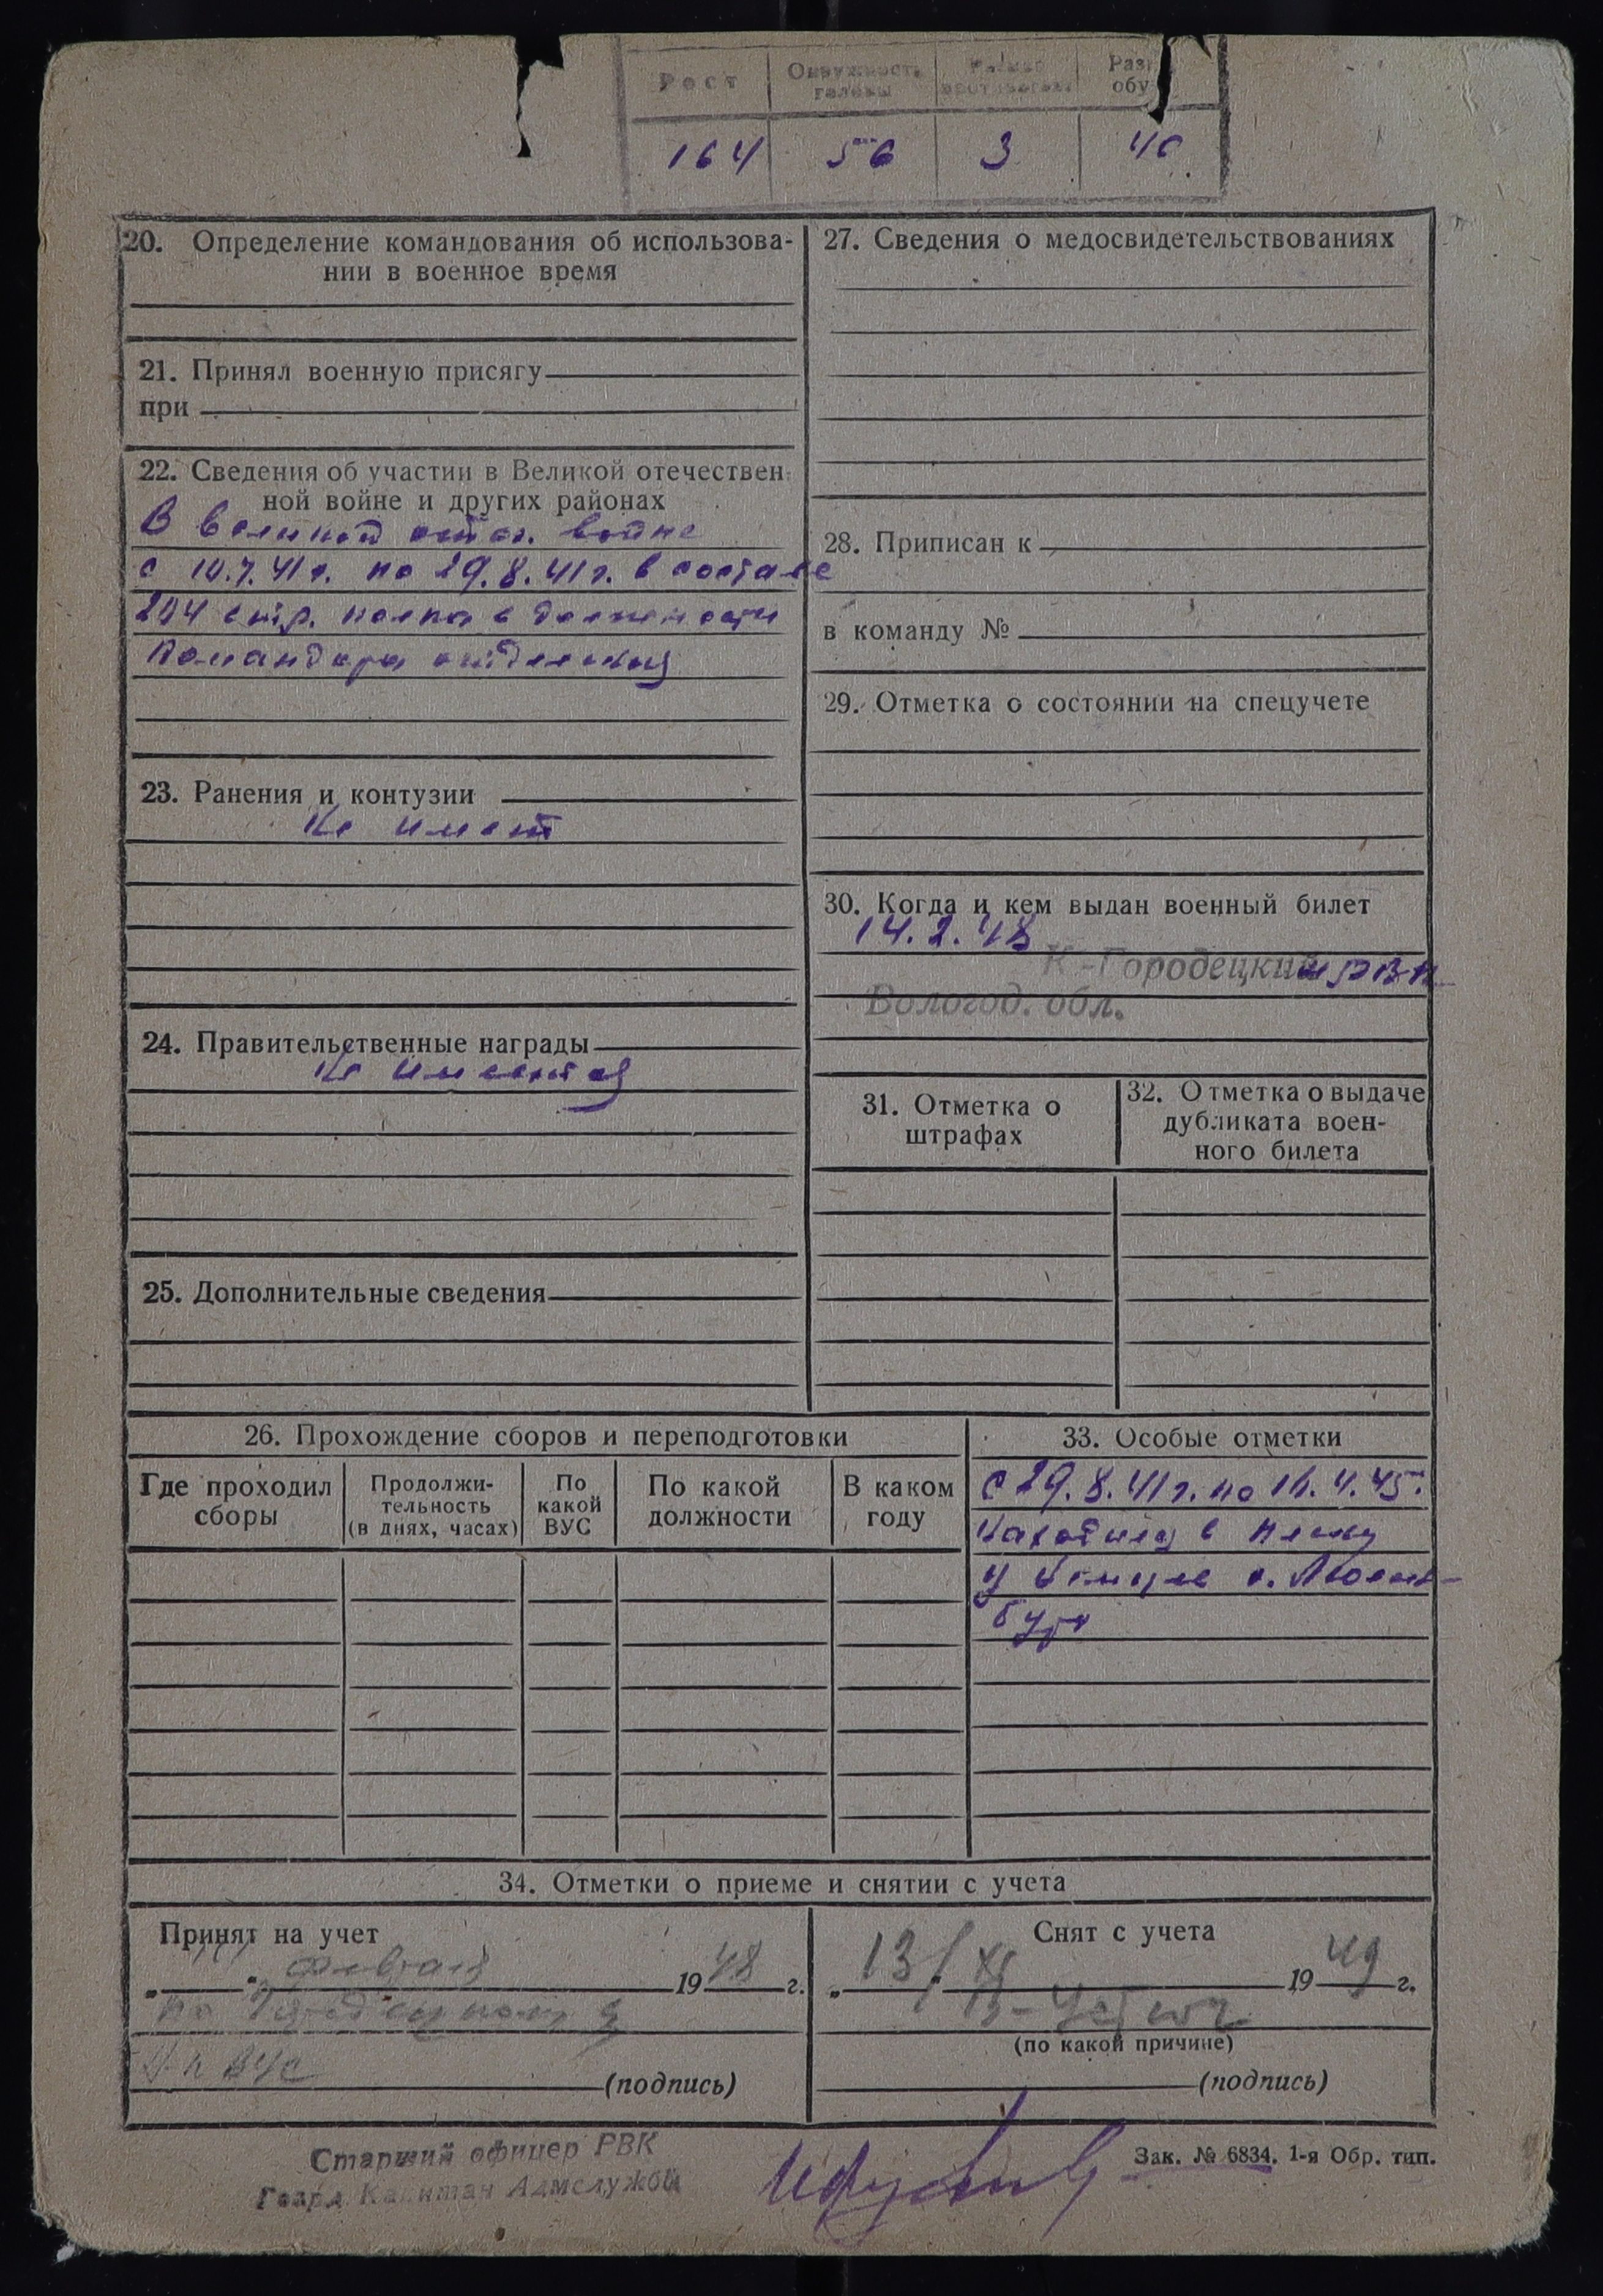 Рост Окружность головы Размер противогаза Разм обу
164 56 3 40
20. Определение командования об использова-
нии в военное время
21. Принял военную присягу
при
22. Сведения об участии в Великой отечествен-
ной войне и других районах
В Великой отеч. войне
с 10.7.41г. по 29.8.41г. в составе
204 стр. полка в должности
Командира отделения
23. Ранения и контузии
Не имеет
24. Правительственные награды
Не имеет
25. Дополнительные сведения
27. Сведения о медосвидетельствованиях
28. Приписан к
в команду №
29. Отметка о состоянии на спецучете
30. Когда и кем выдан военный билет
14.2.48
К-Городецким РВК
Вологод. обл.
31. Отметка о
штрафах
32. Отметка о выдаче
дубликата воен-
ного билета
26. Прохождение сборов и переподготовки
Где проходил
сборы
Продолжи-
тельность
(в днях, часах)
По
какой
ВУС
По какой
должности
В каком
году
33. Особые отметки
С 29.8.41г. по 16.4.45.
Находился в плену
у немцев г. Люксем-
бург
34. Отметки о приеме и снятии с учета
Принят на учет
" " февраля 1948 г.
по
ВУС
(подпись)
Снят с учета
" 13/XI 1949 г.
В-Устюг
(по какой причине)
(подпись)
Старший офицер РВК
Гвард. Капитан Адмслужбы
Зак. № 6834. 1-я Обр. тип.